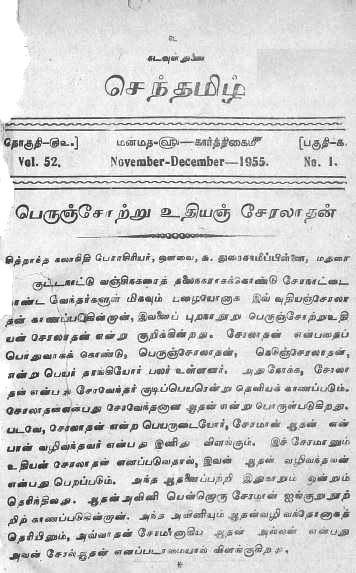 உ
கடவுள் துணை
செந்தமிழ்
தொகுதி-௫௨.]
மன்மத-௵—கார்த்திகைமீ
[பகுதி-க.
Vol. 52.
November-December—1955.
No. 1.
பெருஞ்சோற்று உதியஞ் சேரலாதன்
சித்தாந்த கலாநிதி பேராசிரியர், ஔவை, சு. துரைசாமிப்பிள்ளை, மதுரை
குட்டநாட்டு வஞ்சிநகரைத் தலைநகராகக்கொண்டு சேரநாட்டை
யாண்ட வேந்தர்களுள் மிகவும் பழையோனாக இவ் வுதியஞ்சேரலா
தன் காணப்படுகின்றான், இவனைப் புறநானூறு பெருஞ்சோற்றுஉதி
யன் சேரலாதன் என்று குறிக்கின்றது. சேரலாதன் என்பதைப்
பொதுவாகக் கொண்டு, பெருஞ்சேரலாதன், நெடுஞ்சேரலாதன்,
என்று பெயர் தாங்கியோர் பலர் உள்ளனர். அது நோக்க, சேரலா
தன் என்பது சேரவேந்தர் குடிப்பெயரென்று தெளியக் காணப்படும்.
சேரலாதன்என்பது சேரவேந்தனான ஆதன் என்று பொருள்படுகிறது.
படவே, சேரலாதன் என்ற பெயருடையோர், சேரமான் ஆதன் என்
பான் வழிவந்தவர் என்பது இனிது விளங்கும். இச் சேரமானும்
உதியன் சேரலாதன் எனப்படுவதால், இவன் ஆதன் வழிவந்தவன்
என்பது பெறப்படும். அந்த ஆதனைப்பற்றி இதுகாறும் ஒன்றும்
தெரிந்திலது. ஆதன்அவினி யென்றொரு சேரமான் ஐங்குறுநூற்
றிற் காணப்படுகின்றான். அந்த அவினியும் ஆதன்வழி வந்தோனாகத்
தெரியினும், அவ்வாதன் சேரமானாகிய ஆதன் அல்லன் என்பது
அவன் சேரலாதன் எனப்படாமையால் விளங்குகிறது.